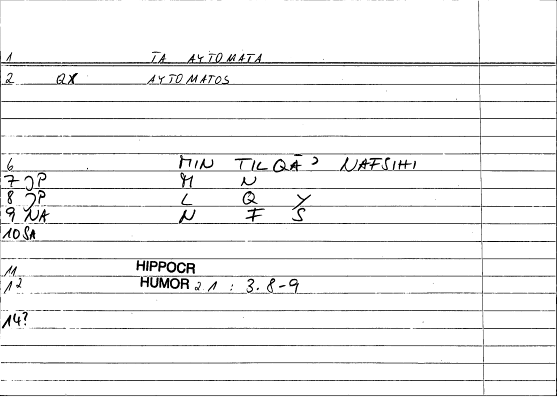 1 TA AYTOMATA
2 QX AYTOMATOS
6 MIN TILQĀ' NAFSIHI
7 JP M N
8 JP L Q Y
9 NA N F S
10 SA
11 HIPPOCR
12 HUMOR 21 : 3.8-9
14?